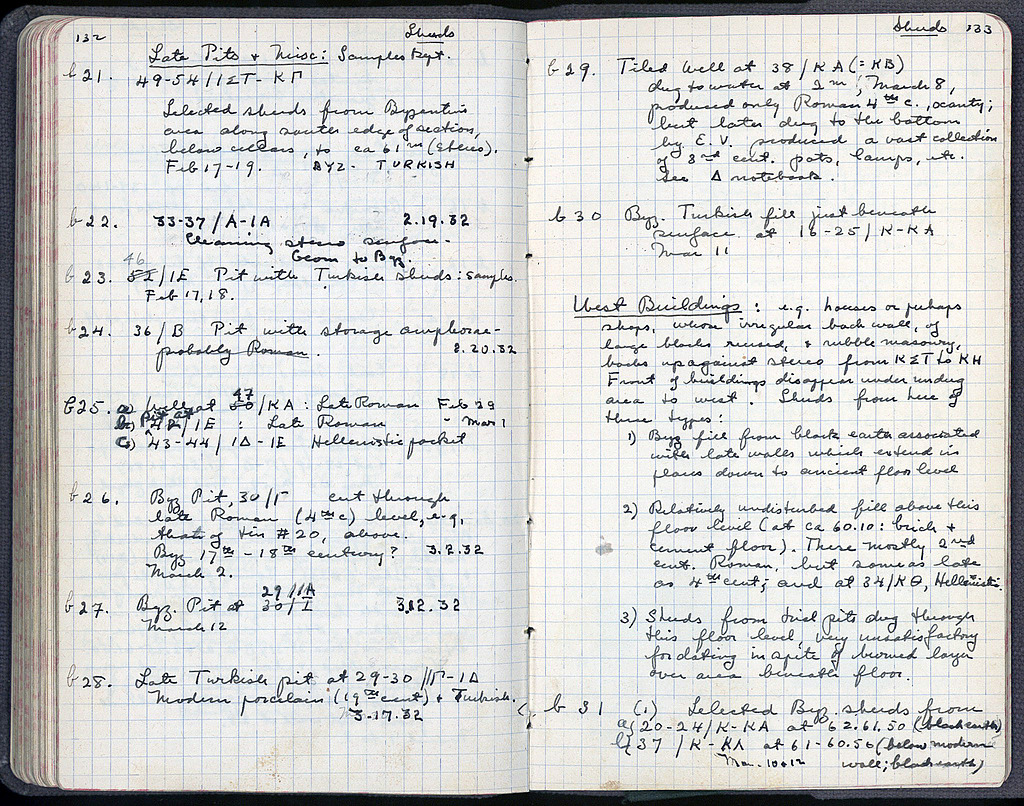 132
Sherds
Late Pits & Misc: Samples Kept.
b 21. 49-54/ΙΣΤ- ΚΓ
Selected sherds from Byzantine
area along south edge of section,
below cellars, to ca 61 m (stereo).
Feb 17-19. BYZ - TURKISH
b 22. 33-37/A-1A 2.19.32
Cleaning stereo surface.
Geom to Byz.
46
b 23. 52/1E Pit with Turkish sherds: samples.
Feb 17, 18.
b 24. 36/B Pit with storage amphorae-
probably Roman. 2.20.32
47
b 25. a) Well at 50/KA: Late Roman Feb 29
b) Pit at 42/1E : Late Roman " Mar 1
c) 43-44/1Δ-1E Hellenistic pocket
b 26. Byz Pit, 30/Γ cut through
late Roman (4th c) level, e.g.
that of tin #20, above.
Byz 17th - 18th century? 3.2.32
March 2.
29/1A
b 27. Byz. Pit at 30/I 3.12.32
March 12
b 28. Late Turkish pit at 29-30/1Γ-1Δ
Modern porcelain (19th cent) & Turkish.
3-17.32
Sherds 133
b 29. Tiled Well at 38/KA (= KB)
dug to water at 2 m, March 8,
produced only Roman 4th c., scanty;
but later dug to the bottom
by E. V. produced a vast collection
of 3rd cent. pots, lamps, etc.
See Δ notebook.
b 30 Byz. Turkish fill just beneath
surface at 16-25/K-KA
Mar 11
West Buildings: e.g. houses or perhaps
shops, whose irregular back wall, of
large blocks reused, & rubble masonry,
backs up against stereo from KΣT to KH
Front of buildings disappear under undug
area to west. Sherds from here of
three types:
1) Byz fill from black earth associated
with late walls which extend in
places down to ancient floor level
2) Relatively undisturbed fill above this
floor level (at ca 60.10: brick &
cement floor). There mostly 2nd
cent. Roman, but some as late
as 4th cent; and at 34/KΘ, Hellenistic.
3) Sherds from trial pits dug through
this floor level, very unsatisfactory
for dating in spite of burned layer
over area beneath floor.
b 31 (1) Selected Byz. sherds from
a) 20-24/K-KA at 62.61.50 (black earth)
b) 37/K-KA at 61-60.50 (below modern
Mar. 10+12 wall; black earth)